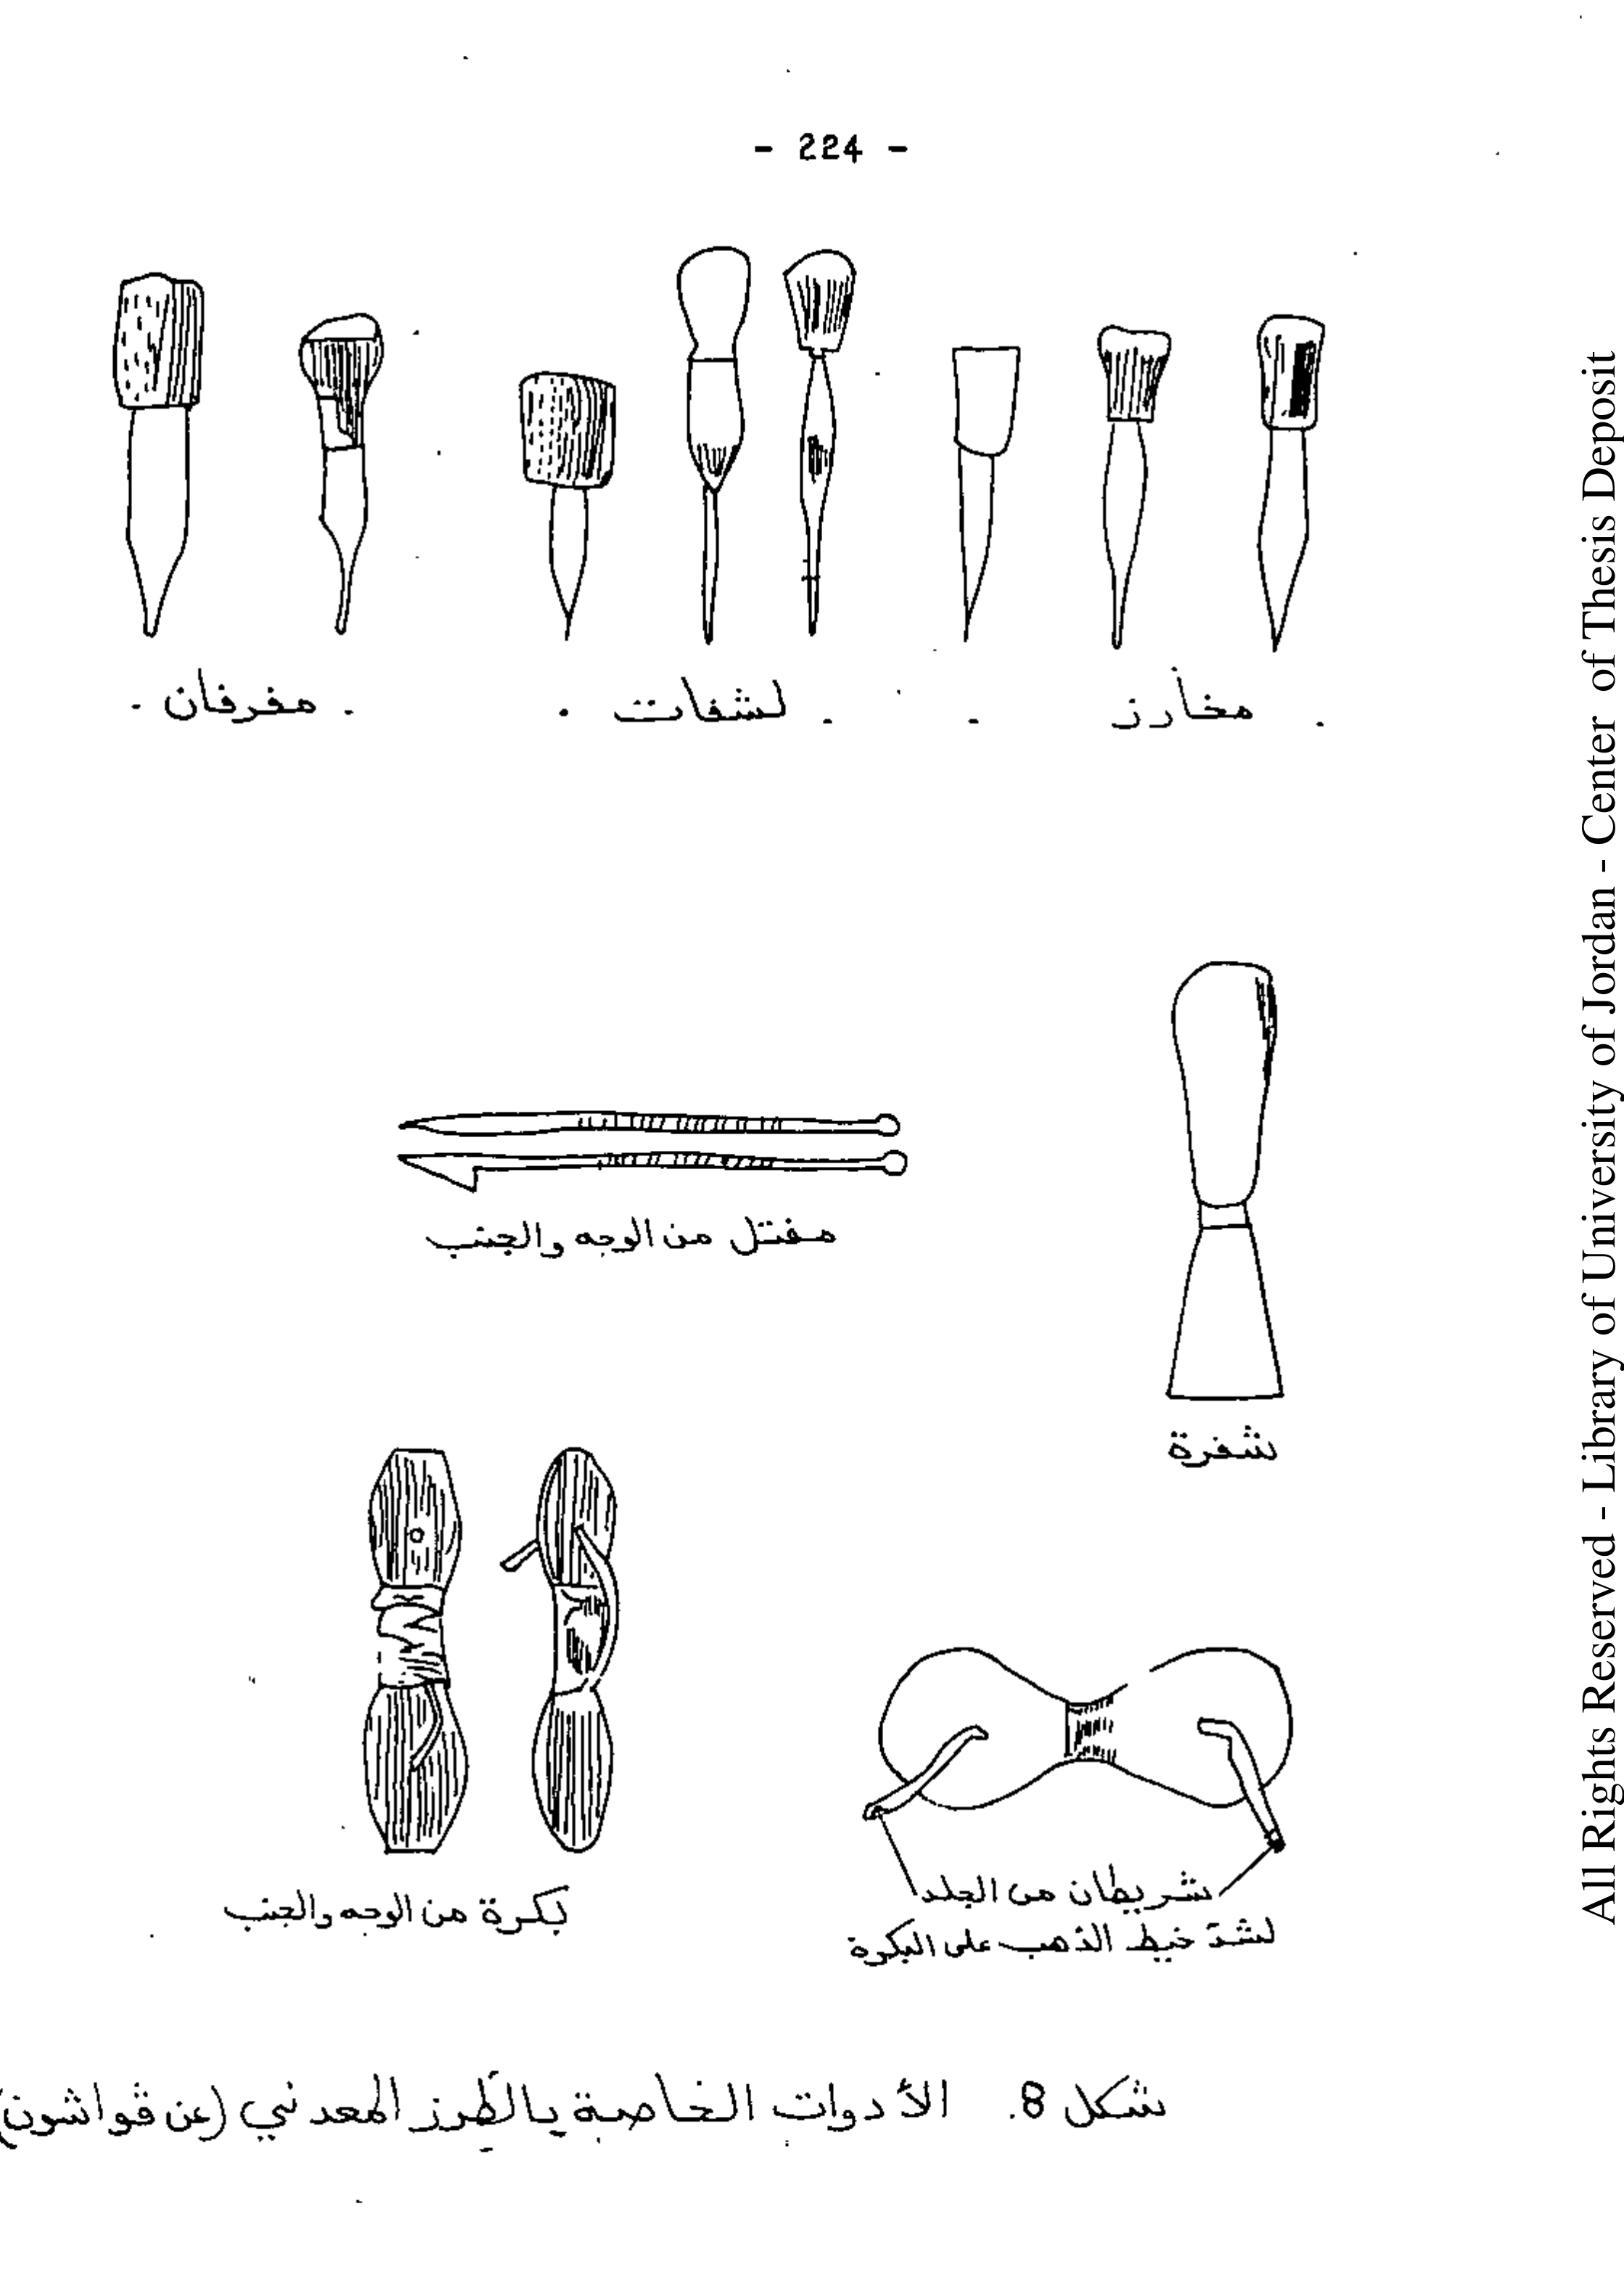 - 224 -
مخارز .
لشفات .
مفرفان .
مفتل من الوجه والجنب
شفرة
بكرة من الوجه والجنب
شريطان من الجلد
لشدّ خيط الذهب على البكرة
شكل 8. الأدوات الخاصة بالطرز المعدني (عن قواشون)
All Rights Reserved - Library of University of Jordan - Center of Thesis Deposit